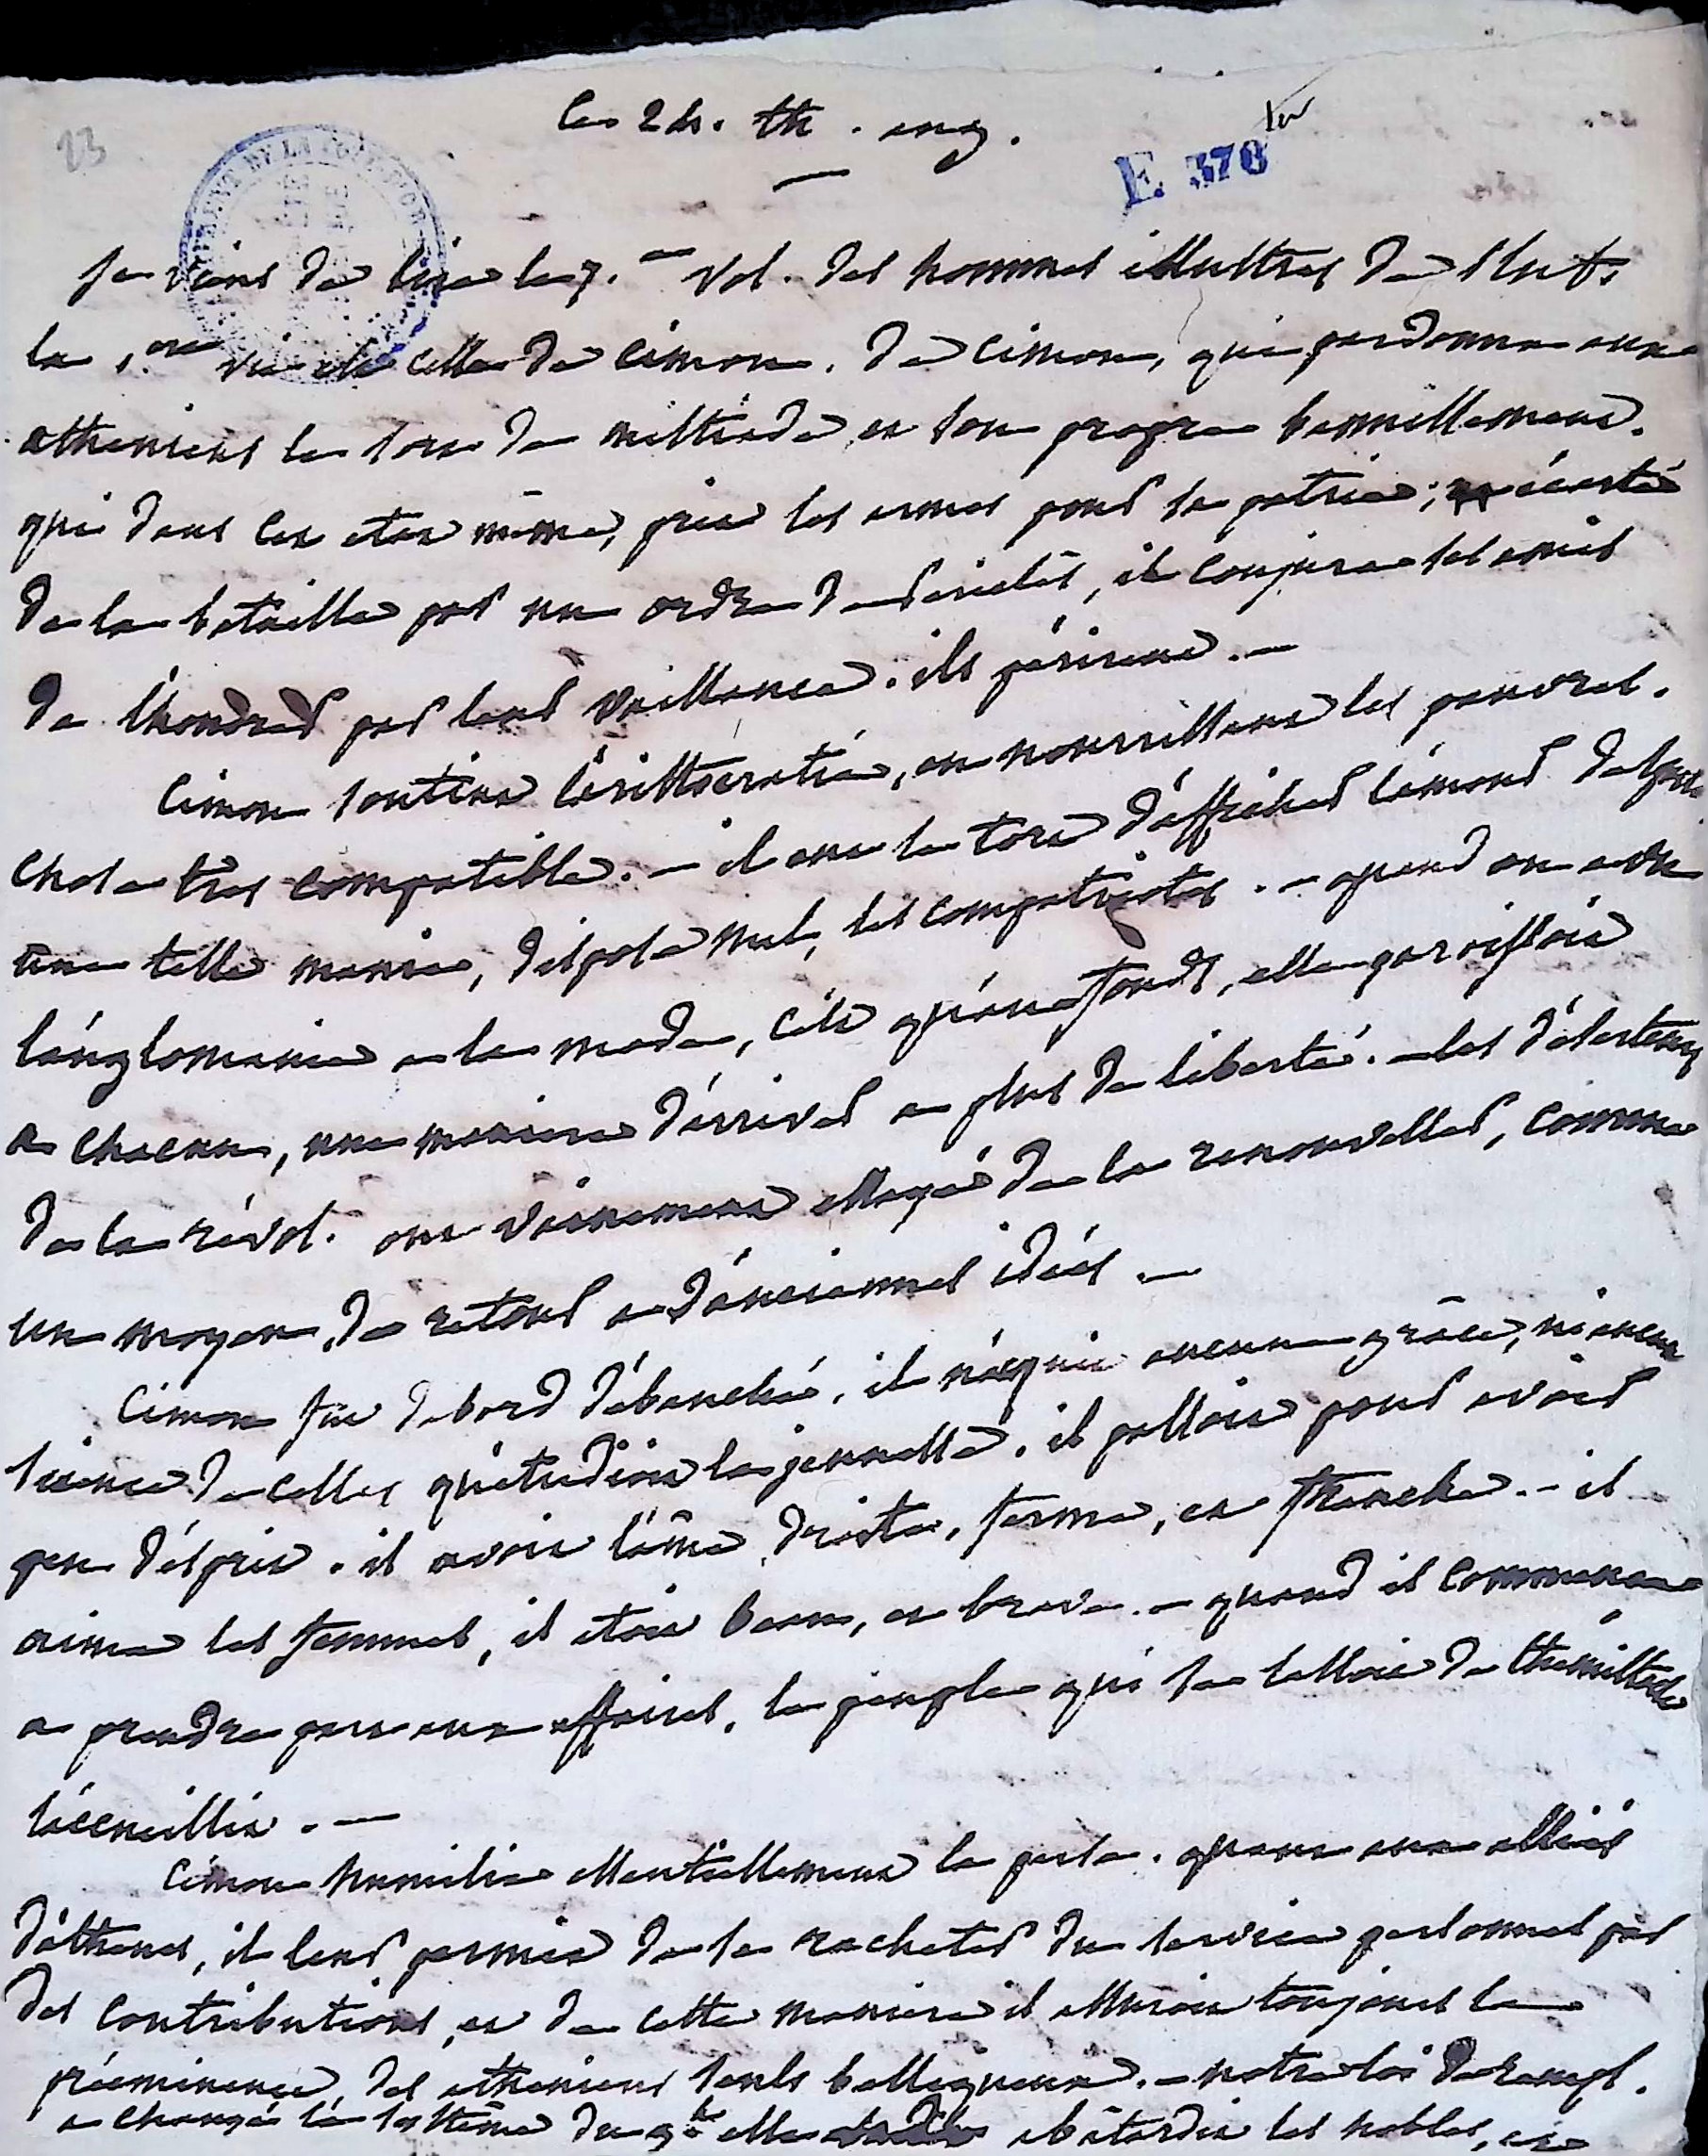 23
le 24. th. ang.
E. 370 ter
Je viens de lire le 7.me vol. des hommes illustres de Plut.
la 1.ere vie est celle de Cimon. de Cimon, qui pardonna aux
atheniens le sort de miltiade et son propre bannissement.
qui dans cet etat même, prit les armes pour sa patrie; écarté
de la bataille par un ordre de, il conjura ses amis
de l'honorer par leur vaillance. ils périrent. —
Cimon soutint l'aristocratie, en nourrissant les pauvres.
chose très compatible. — il eut le tort d'afficher l'amour de Sparte
une telle manie, dispose mal, ses compatriotes. — quand on a vu
l'anglomanie a la mode, c'est qu'au fonds, elle paroissoit
a chacun, une maniere d'arriver a plus de liberté. — les détesteurs
de la révol. ont vainement essayé de la renouveller, comme
un moyen, de retour a d'anciennes idées. —
Cimon fut d'abord débauché, il n'acquit aucune grâce, ni aucune
science de celles qu'etudioit la jeunesse. il passoit pour avoir
peu d'esprit. il avoit l'âme droite, ferme, et franche. — il
aima les femmes, il etoit beau, et brave. — quand il commença
a prendre part aux affaires, le peuple qui se lassoit de thémistocle
l'accueillit. —
Cimon humilia essentiellement la perse. quant aux alliés
d'athenes, il leur permit de se racheter du service personnel par
des contributions, et de cette maniere il assuroit toujours la
prééminence, des atheniens seuls belliqueux. — notre loi de rempl.
a changé le systême du g.al elle abâtardit les nobles, et